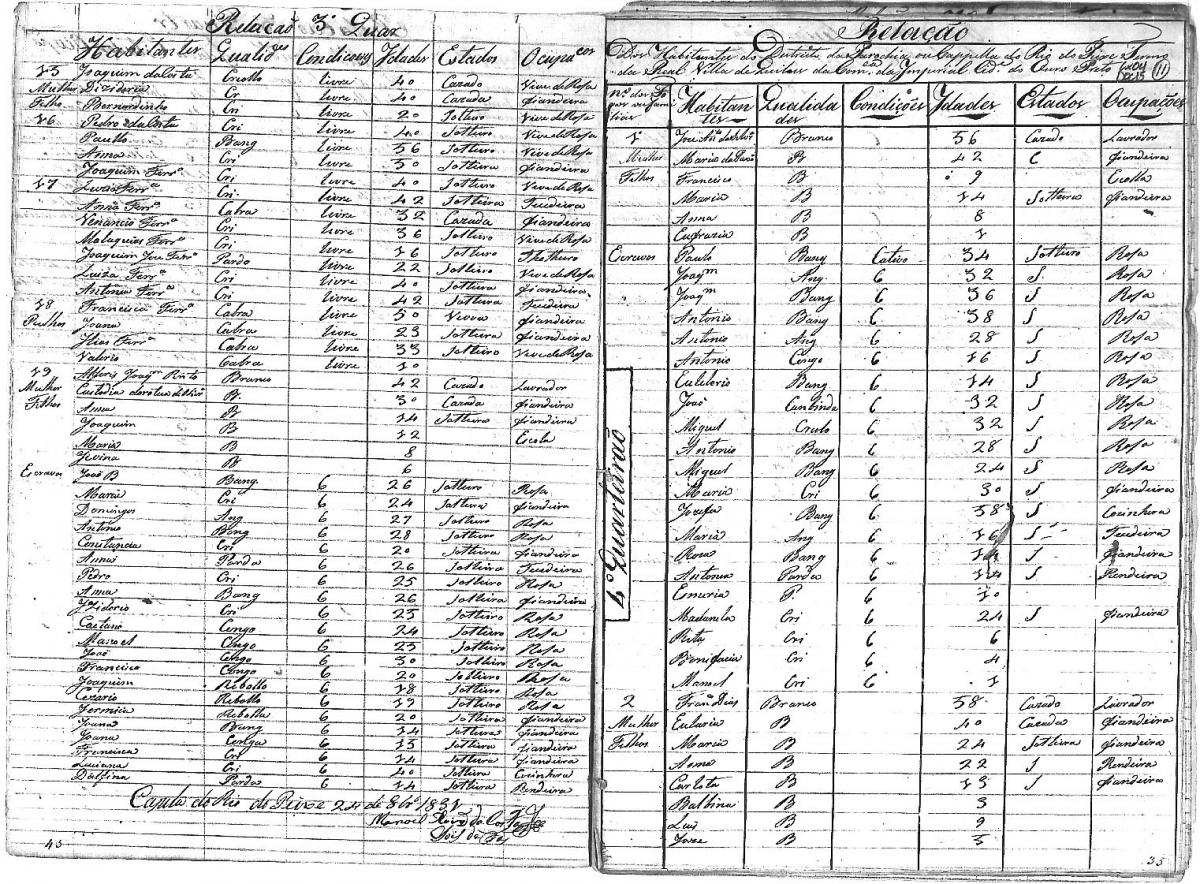 Relação 3º Quar
Habitantes Qualides Condicoens Idades Estados Ocupacoes
15 Joaquim da Costa Criollo livre 40 Cazado Vive de Rosa
Mulher Dizideria Cr livre 40 Cazada fiandeira
Filho Bernardinho Cri livre 20 Solteiro Vive de Rosa
16 Pedro da Costa Cri livre 40 Solteiro Vive de Rosa
Paullo Bang livre 56 Solteiro Vive de Rosa
Anna Cri livre 50 Solteira fiandeira
Joaquim Ferrª Cri livre 40 Solteiro Vive de Rosa
17 Ferrª Cri livre 42 Solteira Teudeira
Anna Ferrª Cabra livre 32 Cazada fiandeira
Venancio Ferrª Cri livre 36 Solteiro Vive de Rosa
Malaquias Ferrª Cri livre 16 Solteiro
Joaquim Joze Ferrª Pardo livre 22 Solteiro Vive de Rosa
Luiza Ferrª Cri livre 40 Solteira fiandeira
Antonia Ferrª Cri livre 42 Solteira Teudeira
18 Francisca Ferrª Cabra livre 50 Viuva fiandeira
Joana Cabra livre 23 Solteira fiandeira
Elias Ferrª Cabra livre 33 Solteiro Vive de Rosa
Valerio Cabra livre 10
19 Joaqm Branco 42 Cazado Lavrador
Mulher Custodia B 30 Cazada fiandeira
Filhos Anna B 14 Solteira fiandeira
Joaquim B 12 Escola
Maria B 8
B 6
Escravos João B Bang 6 26 Solteiro Rosa
Maria Cri 6 24 Solteira fiandeira
Domingos Ang 6 27 Solteiro Rosa
Antonio Bang 6 28 Solteiro Rosa
Constancia Cri 6 20 Solteira fiandeira
Anna Parda 6 26 Solteira Teudeira
Pedro Cri 6 25 Solteiro Rosa
Anna Bang 6 26 Solteira fiandeira
Izidorio Cri 6 25 Solteiro Rosa
Caetano Congo 6 24 Solteiro Rosa
Manoel Congo 6 23 Solteiro Rosa
João Congo 6 30 Solteiro Rosa
Francisco Congo 6 20 Solteiro Rosa
Joaquim Rebollo 6 18 Solteiro Rosa
Cezario Rebollo 6 19 Solteiro Rosa
Rebolla 6 20 Solteira fiandeira
Joana Bang 6 14 Solteira fiandeira
Joana Conga 6 15 Solteira fiandeira
Francisca Cri 6 14 Solteira fiandeira
Luciana Cri 6 40 Solteira Cozinhera
Dalfina Parda 6 14 Solteira Rendeira
Capela do Rio do Peixe 24 de 8bro 1831
Manoel da Costa
45
Relação
Dos Habitantes do Districto da Parochia ou Cappella do Rio do Peixe Termo
da Real Villa de Queluz da Com. da Imperial Cid. do Ouro Preto 11
n.º dos Fogos ou familias Habitantes Qualidades Condições Idades Estados Ocupações
4º Quarteirão
1 Branco 56 Cazado Lavrador
Mulher Maria B 42 C fiandeira
Filhos Francisco B 9 Escolla
Maria B 14 Solteira fiandeira
Anna B 8
Eufrazia B 1
Escravos Paulo Bang Cativo 34 Solteiro Rosa
Joaqm Ang 6 32 S Rosa
Joaqm Bang 6 36 S Rosa
Antonio Bang 6 38 S Rosa
Antonio Ang 6 28 S Rosa
Antonio Congo 6 16 S Rosa
Bang 6 14 S Rosa
João Cunbinda 6 32 S Rosa
Miguel Crulo 6 32 S Rosa
Antonio Bang 6 28 S Rosa
Miguel Bang 6 24 S Rosa
Maria Cri 6 30 S fiandeira
Jozefa Bang 6 38 S Cozinhera
Maria Ang 6 16 S Teudeira
Roza Bang 6 14 S fiandeira
Antonia Parda 6 14 S Rendeira
P 6 10
Madanela Cri 6 24 S fiandeira
Rita Cri 6 6
Bonifacia Cri 6 4
Manoel Cri 6 1
2 Franco Dias Branco 58 Cazado Lavrador
Mulher Eularia B 40 Cazada fiandeira
Filhos Maria B 24 Solteira fiandeira
Anna B 22 S Rendeira
Carlota B 13 S fiandeira
Balbina B 3
Luis B 9
Joze B 5
35